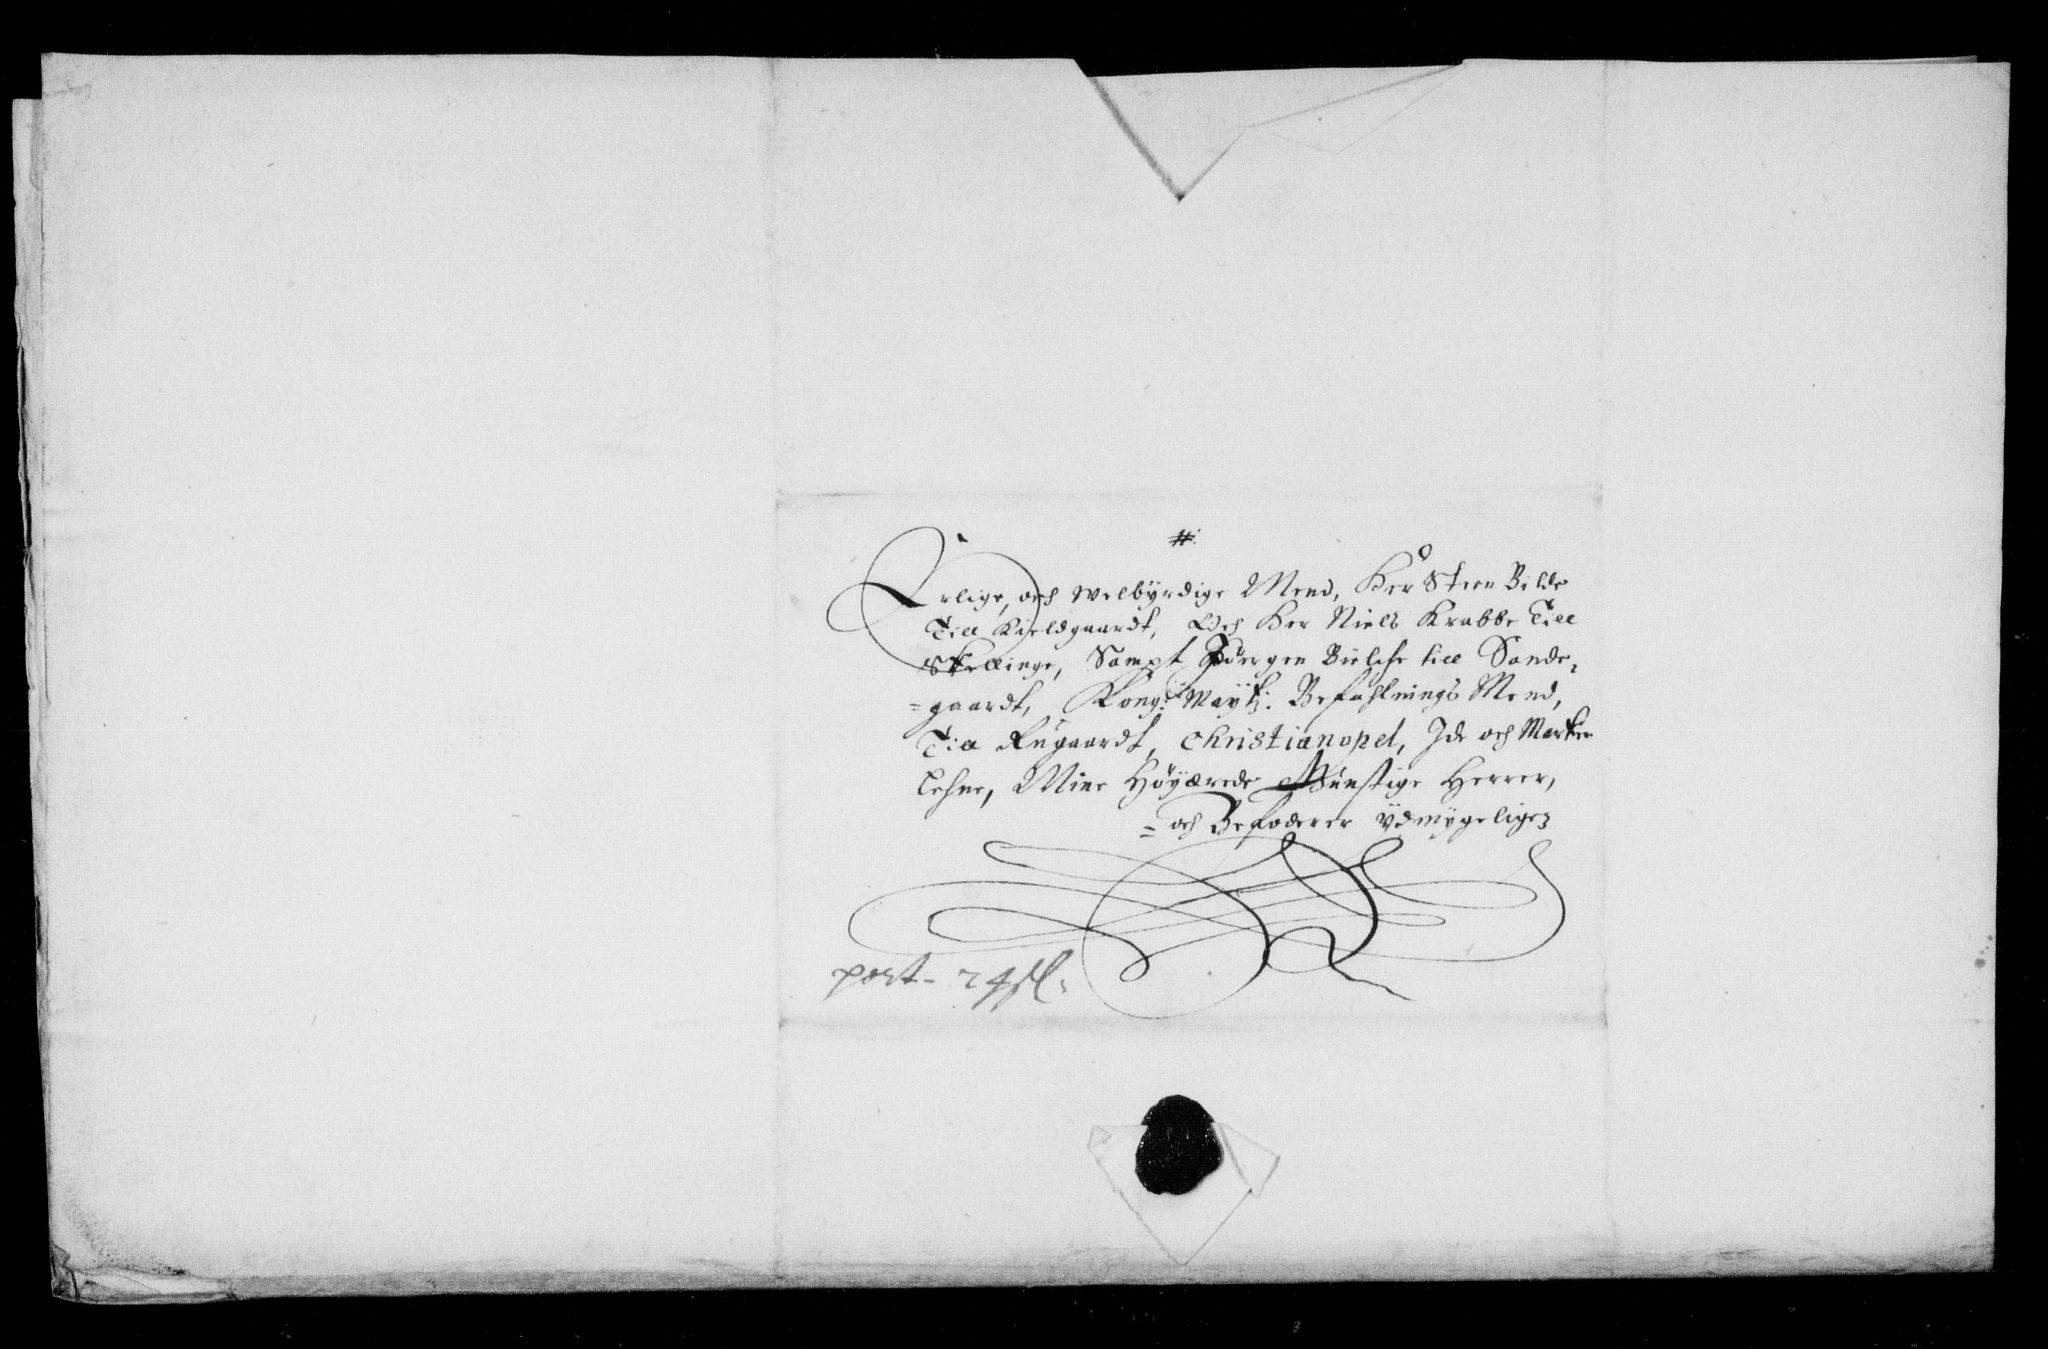 #
Erlige, och Welbÿrdige Mend, Her Steen Bilde
Till Kieldgaardt, Och Her Niels Krabbe Till
Skellinge, Sampt Jörgen Bielche till Sande,
=gaardt, Kong: Maÿtz: Befahlnings Mend,
Till Rugaardt, Christianopel, Ide och Marker
Lehne, Mine Höÿærede Gunstige Herrer,
= och Befoderer ÿdmÿgeligen
port - 24 sl.